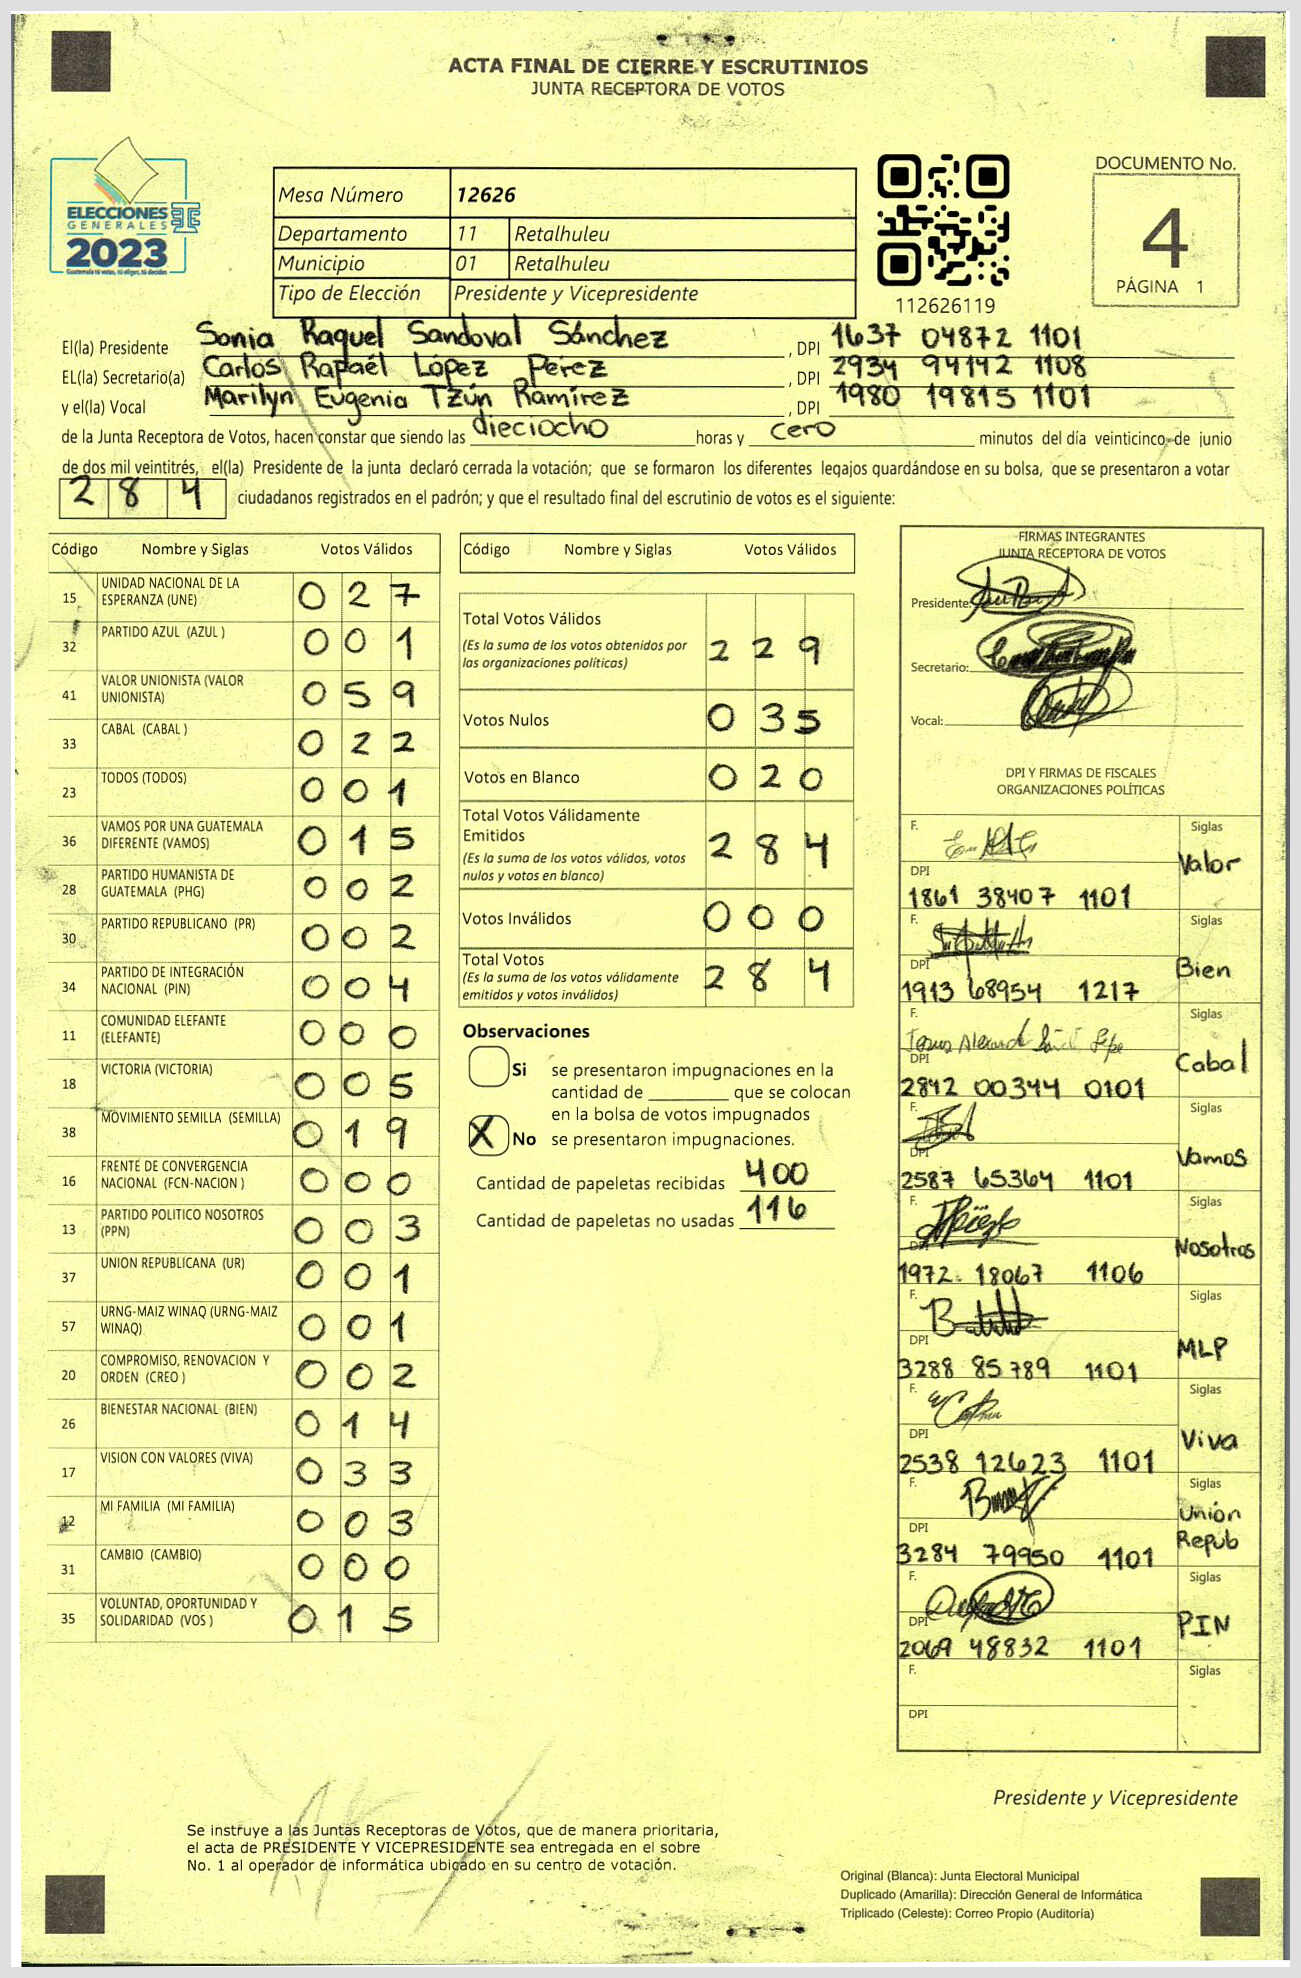 ACTA FINAL DE CIERRE Y ESCRUTINIOS
JUNTA RECEPTORA DE VOTOS
ELECCIONES
GENERALES
2023
Guatemala tú votas, tú eliges, tú decides
Mesa Número 12626
Departamento 11 Retalhuleu
Municipio 01 Retalhuleu
Tipo de Elección Presidente y Vicepresidente
112626119
DOCUMENTO No.
4
PÁGINA 1
El(la) Presidente Sonia Raquel Sandoval Sánchez, DPI 1637 04872 1101
EL(la) Secretario(a) Carlos Rapaél López Pérez, DPI 2934 94142 1108
y el(la) Vocal Marilyn Eugenia Tzún Ramírez, DPI 1980 19815 1101
de la Junta Receptora de Votos, hacen constar que siendo las dieciocho horas y cero minutos del día veinticinco de junio
de dos mil veintitrés, el(la) Presidente de la junta declaró cerrada la votación; que se formaron los diferentes legajos quardándose en su bolsa, que se presentaron a votar
284 ciudadanos registrados en el padrón; y que el resultado final del escrutinio de votos es el siguiente:
Código Nombre y Siglas Votos Válidos
15 UNIDAD NACIONAL DE LA ESPERANZA (UNE) 027
32 PARTIDO AZUL (AZUL ) 001
41 VALOR UNIONISTA (VALOR UNIONISTA) 059
33 CABAL (CABAL ) 022
23 TODOS (TODOS) 001
36 VAMOS POR UNA GUATEMALA DIFERENTE (VAMOS) 015
28 PARTIDO HUMANISTA DE GUATEMALA (PHG) 002
30 PARTIDO REPUBLICANO (PR) 002
34 PARTIDO DE INTEGRACIÓN NACIONAL (PIN) 004
11 COMUNIDAD ELEFANTE (ELEFANTE) 000
18 VICTORIA (VICTORIA) 005
38 MOVIMIENTO SEMILLA (SEMILLA) 019
16 FRENTE DE CONVERGENCIA NACIONAL (FCN-NACION ) 000
13 PARTIDO POLITICO NOSOTROS (PPN) 003
37 UNION REPUBLICANA (UR) 001
57 URNG-MAIZ WINAQ (URNG-MAIZ WINAQ) 001
20 COMPROMISO, RENOVACION Y ORDEN (CREO ) 002
26 BIENESTAR NACIONAL (BIEN) 014
17 VISION CON VALORES (VIVA) 033
12 MI FAMILIA (MI FAMILIA) 003
31 CAMBIO (CAMBIO) 000
35 VOLUNTAD, OPORTUNIDAD Y SOLIDARIDAD (VOS ) 015
Código Nombre y Siglas Votos Válidos
Total Votos Válidos
(Es la suma de los votos obtenidos por las organizaciones políticas) 229
Votos Nulos 035
Votos en Blanco 020
Total Votos Válidamente Emitidos
(Es la suma de los votos válidos, votos nulos y votos en blanco) 284
Votos Inválidos 000
Total Votos
(Es la suma de los votos válidamente emitidos y votos inválidos) 284
Observaciones
Si se presentaron impugnaciones en la
cantidad de ________ que se colocan
en la bolsa de votos impugnados
X No se presentaron impugnaciones.
Cantidad de papeletas recibidas 400
Cantidad de papeletas no usadas 116
FIRMAS INTEGRANTES
JUNTA RECEPTORA DE VOTOS
Presidente:
Secretario:
Vocal:
DPI Y FIRMAS DE FISCALES
ORGANIZACIONES POLÍTICAS
F. Siglas
Valor
DPI
1861 38407 1101
F. Siglas
Bien
DPI
1913 68954 1217
F. Siglas
Cabal
DPI
2842 00344 0101
F. Siglas
Vamos
DPI
2587 65364 1101
F. Siglas
Nosotros
DPI
1972 18067 1106
F. Siglas
MLP
DPI
3288 85789 1101
F. Siglas
Viva
DPI
2538 12623 1101
F. Siglas
Unión
Repub
DPI
3284 79950 1101
F. Siglas
PIN
DPI
2069 48832 1101
F. Siglas
DPI
Presidente y Vicepresidente
Se instruye a las Juntas Receptoras de Votos, que de manera prioritaria,
el acta de PRESIDENTE Y VICEPRESIDENTE sea entregada en el sobre
No. 1 al operador de informática ubicado en su centro de votación.
Original (Blanca): Junta Electoral Municipal
Duplicado (Amarilla): Dirección General de Informática
Triplicado (Celeste): Correo Propio (Auditoría)